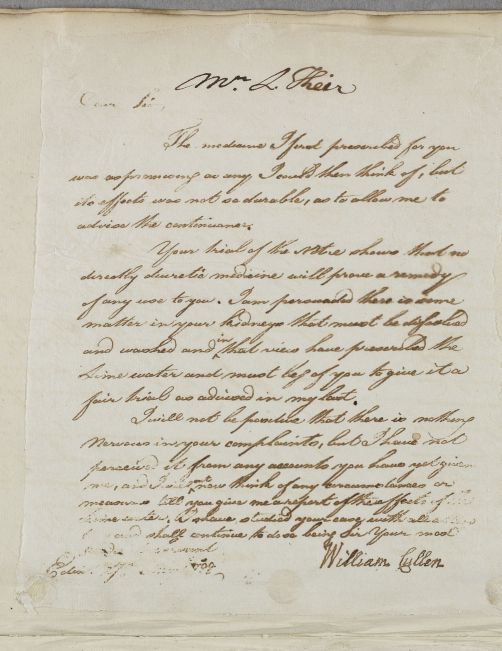 Mr. L. Their
Dear Sir,
The medicine I first prescribed for you
was as promising as any I could then think of, but
its effects was not so durable, as to allow me to
advise the continuance.
Your trial of the Nitre shows that no
directly diuretic medicine will prove a remedy
of any use to you. I am persuaded there is some
matter in your Kidneys that must be dissolved
and washed and in that view have prescribed the
Lime water and must beg of you to give it a
fair trial as advised in my last.
I will not be positive that there is nothing
Nervous in your complaints, but I have not
perceived it from any accounts you have yet given
me, and I now think of any circumstances or
measures till you give me a report of the effects of
Lime water, I have studied your case with all
and shall continue to do so being Sir Your most
William Cullen